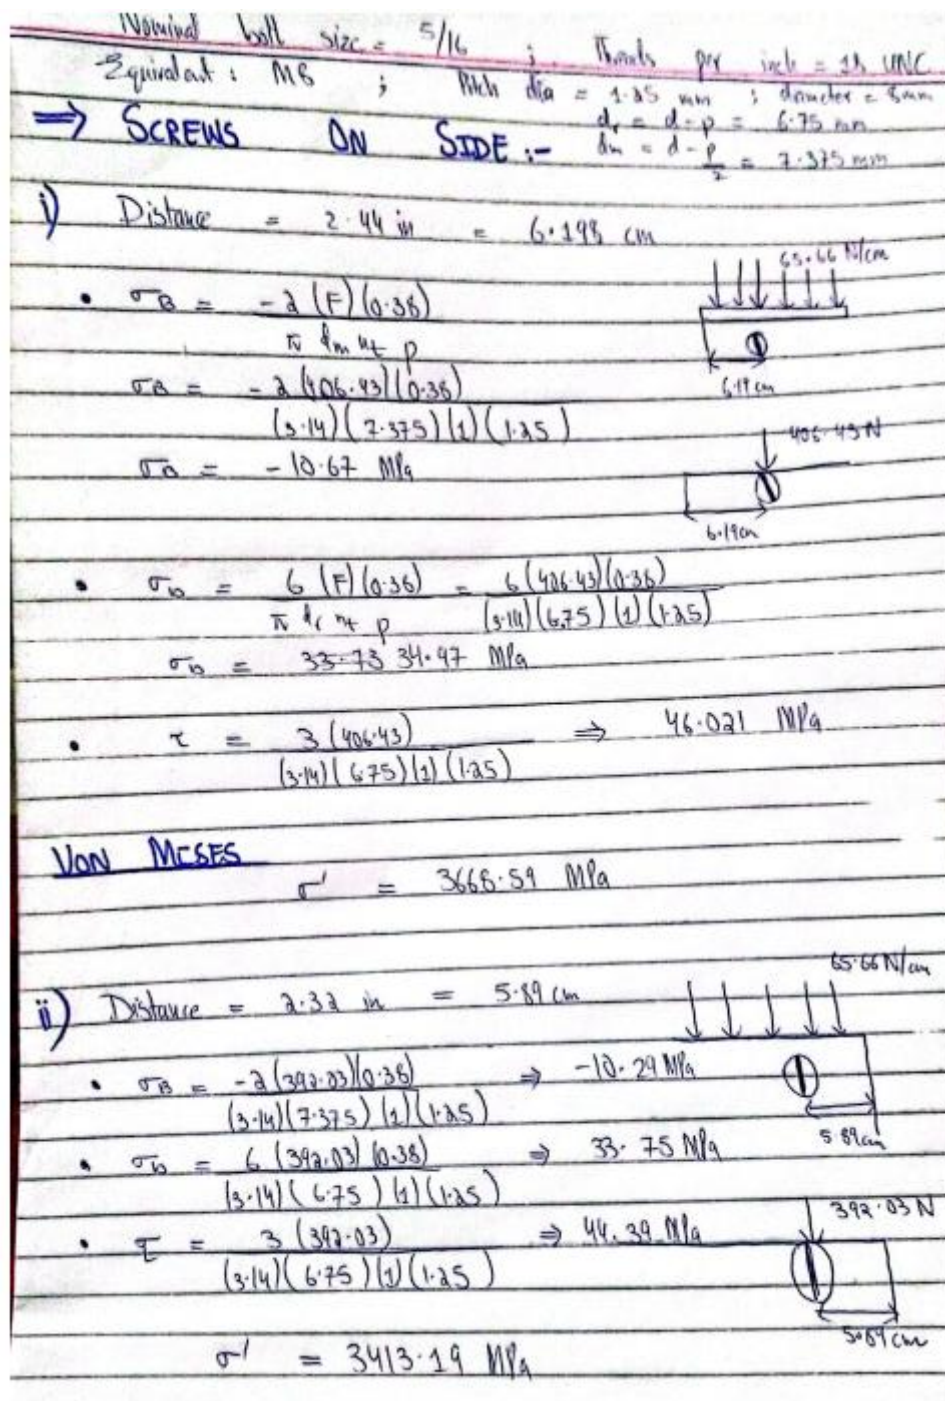 Nominal bolt size = 5/16 ; Threads per inch = 18 UNC
Equivalent : M8 ; Pitch dia = 1.25 mm ; diameter = 8mm
dr = d - p = 6.75 mm
⇒ SCREWS ON SIDE :-
dm = d - p/2 = 7.375 mm
i) Distance = 2.44 in = 6.198 cm
65.66 N/cm
• σB = -2 (F)(0.38) / π dm nt p
6.19 cm
σB = -2 (406.43)(0.38) / (3.14)(7.375)(1)(1.25)
406.43 N
σB = -10.67 MPa
6.19cm
• σb = 6 (F)(0.38) / π dr nt p = 6 (406.43)(0.38) / (3.14)(6.75)(1)(1.25)
σb = 33.73 34.97 MPa
• τ = 3 (406.43) / (3.14)(6.75)(1)(1.25) ⇒ 46.021 MPa
VON MESES
σ' = 3668.59 MPa
65.66 N/cm
ii) Distance = 2.32 in = 5.89 cm
• σB = -2 (392.03)(0.38) / (3.14)(7.375)(1)(1.25) ⇒ -10.29 MPa
5.89cm
• σb = 6 (392.03)(0.38) / (3.14)(6.75)(1)(1.25) ⇒ 33.75 MPa
392.03 N
• τ = 3 (392.03) / (3.14)(6.75)(1)(1.25) ⇒ 44.39 MPa
5.89 cm
σ' = 3413.19 MPa